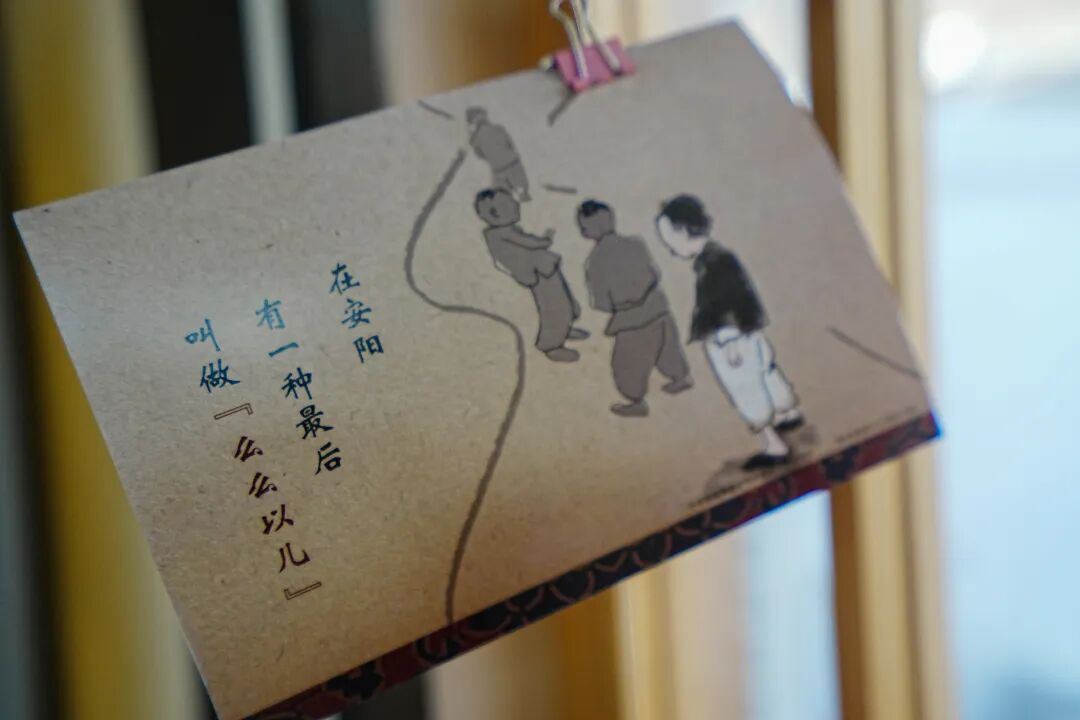 在安阳
有一种最后
叫做『么么以儿』